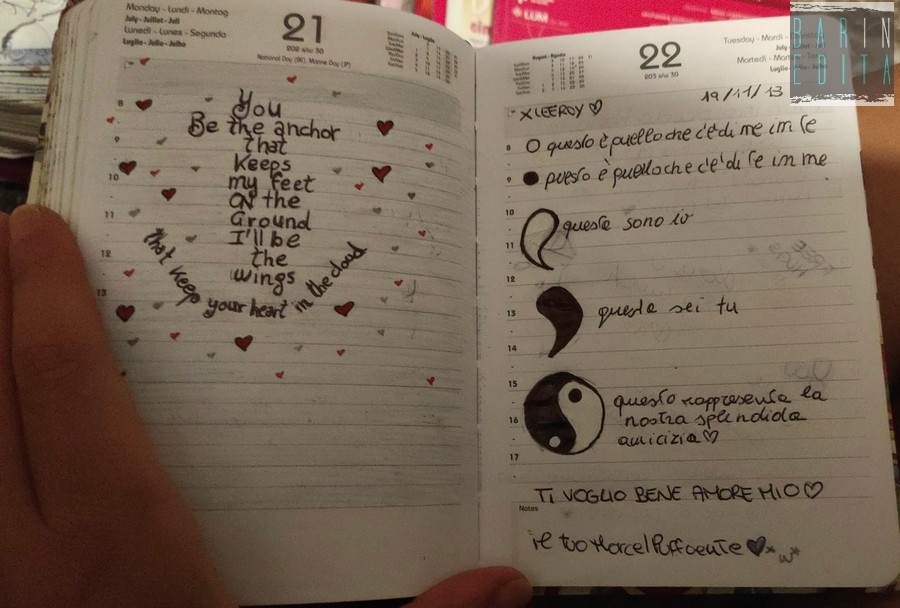 Monday - Lundi - Montag
July - Juillet - Juli
Lunedì - Lunes - Segunda
Luglio - Julio - Julho
21
202 síö 30
National Day (BE), Marine Day (JP)
July / Luglio
8
9
10
11
12
13
You
Be the anchor
that
Keeps
my feet
ON the
Ground
I'll be
the
wings
that keep your heart in the cloud
LUM
22
203 síö 30
August - Agosto
Tuesday - Mardi -
July
Martedì - Ma
Luglio
BARIN
EDITA
19/11/13
X LEEROY ♡
8
O questo è quello che c'è di me in te
9
● questo è quello che c'è di te in me
10
questa sono io
11
12
13
questa sei tu
14
15
questo rappresenta la
16
nostra splendida
amicizia ♡
17
TI VOGLIO BENE AMORE MIO ♡
Notes
il tuo Marcel Puffoente